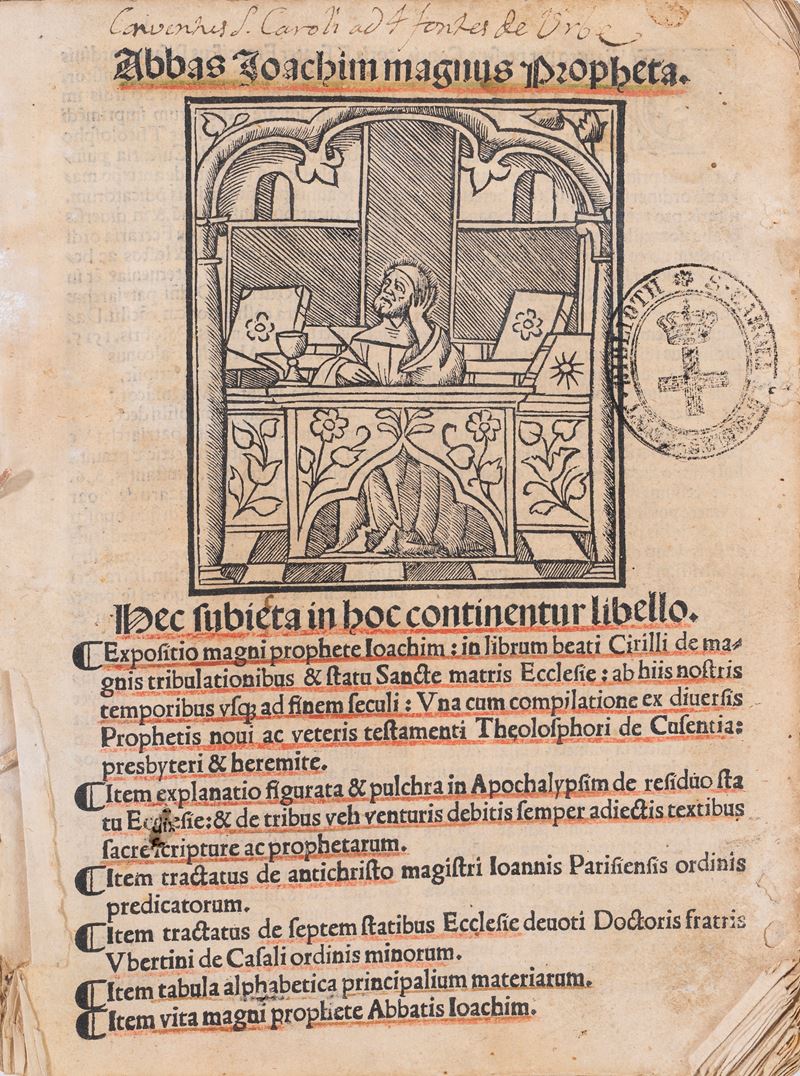 Conventus S. Caroli ad 4 fontes de Urbe
Abbas Joachim magnus Propheta.
BIBLIOTH S. CAROLI
Hec subieta in hoc continentur libello.
Expositio magni prophete Ioachim : in librum beati Cirilli de ma⸗
gnis tribulationibus & statu Sancte matris Ecclesie : ab hiis nostris
temporibus vsqꝫ ad finem seculi : Vna cum compilatione ex diuersis
Prophetis noui ac veteris testamenti Theolosphori de Cusentia:
presbyteri & heremite.
Item explanatio figurata & pulchra in Apochalypsim de residuo sta
tu Ecclesie: & de tribus veh venturis debitis semper adiectis textibus
sacre scripture ac prophetarum.
Item tractatus de antichristo magistri Ioannis Parisiensis ordinis
predicatorum.
Item tractatus de septem statibus Ecclesie deuoti Doctoris fratris
Vbertini de Casali ordinis minorum.
Item tabula alphabetica principalium materiarum.
Item vita magni prophete Abbatis Ioachim.